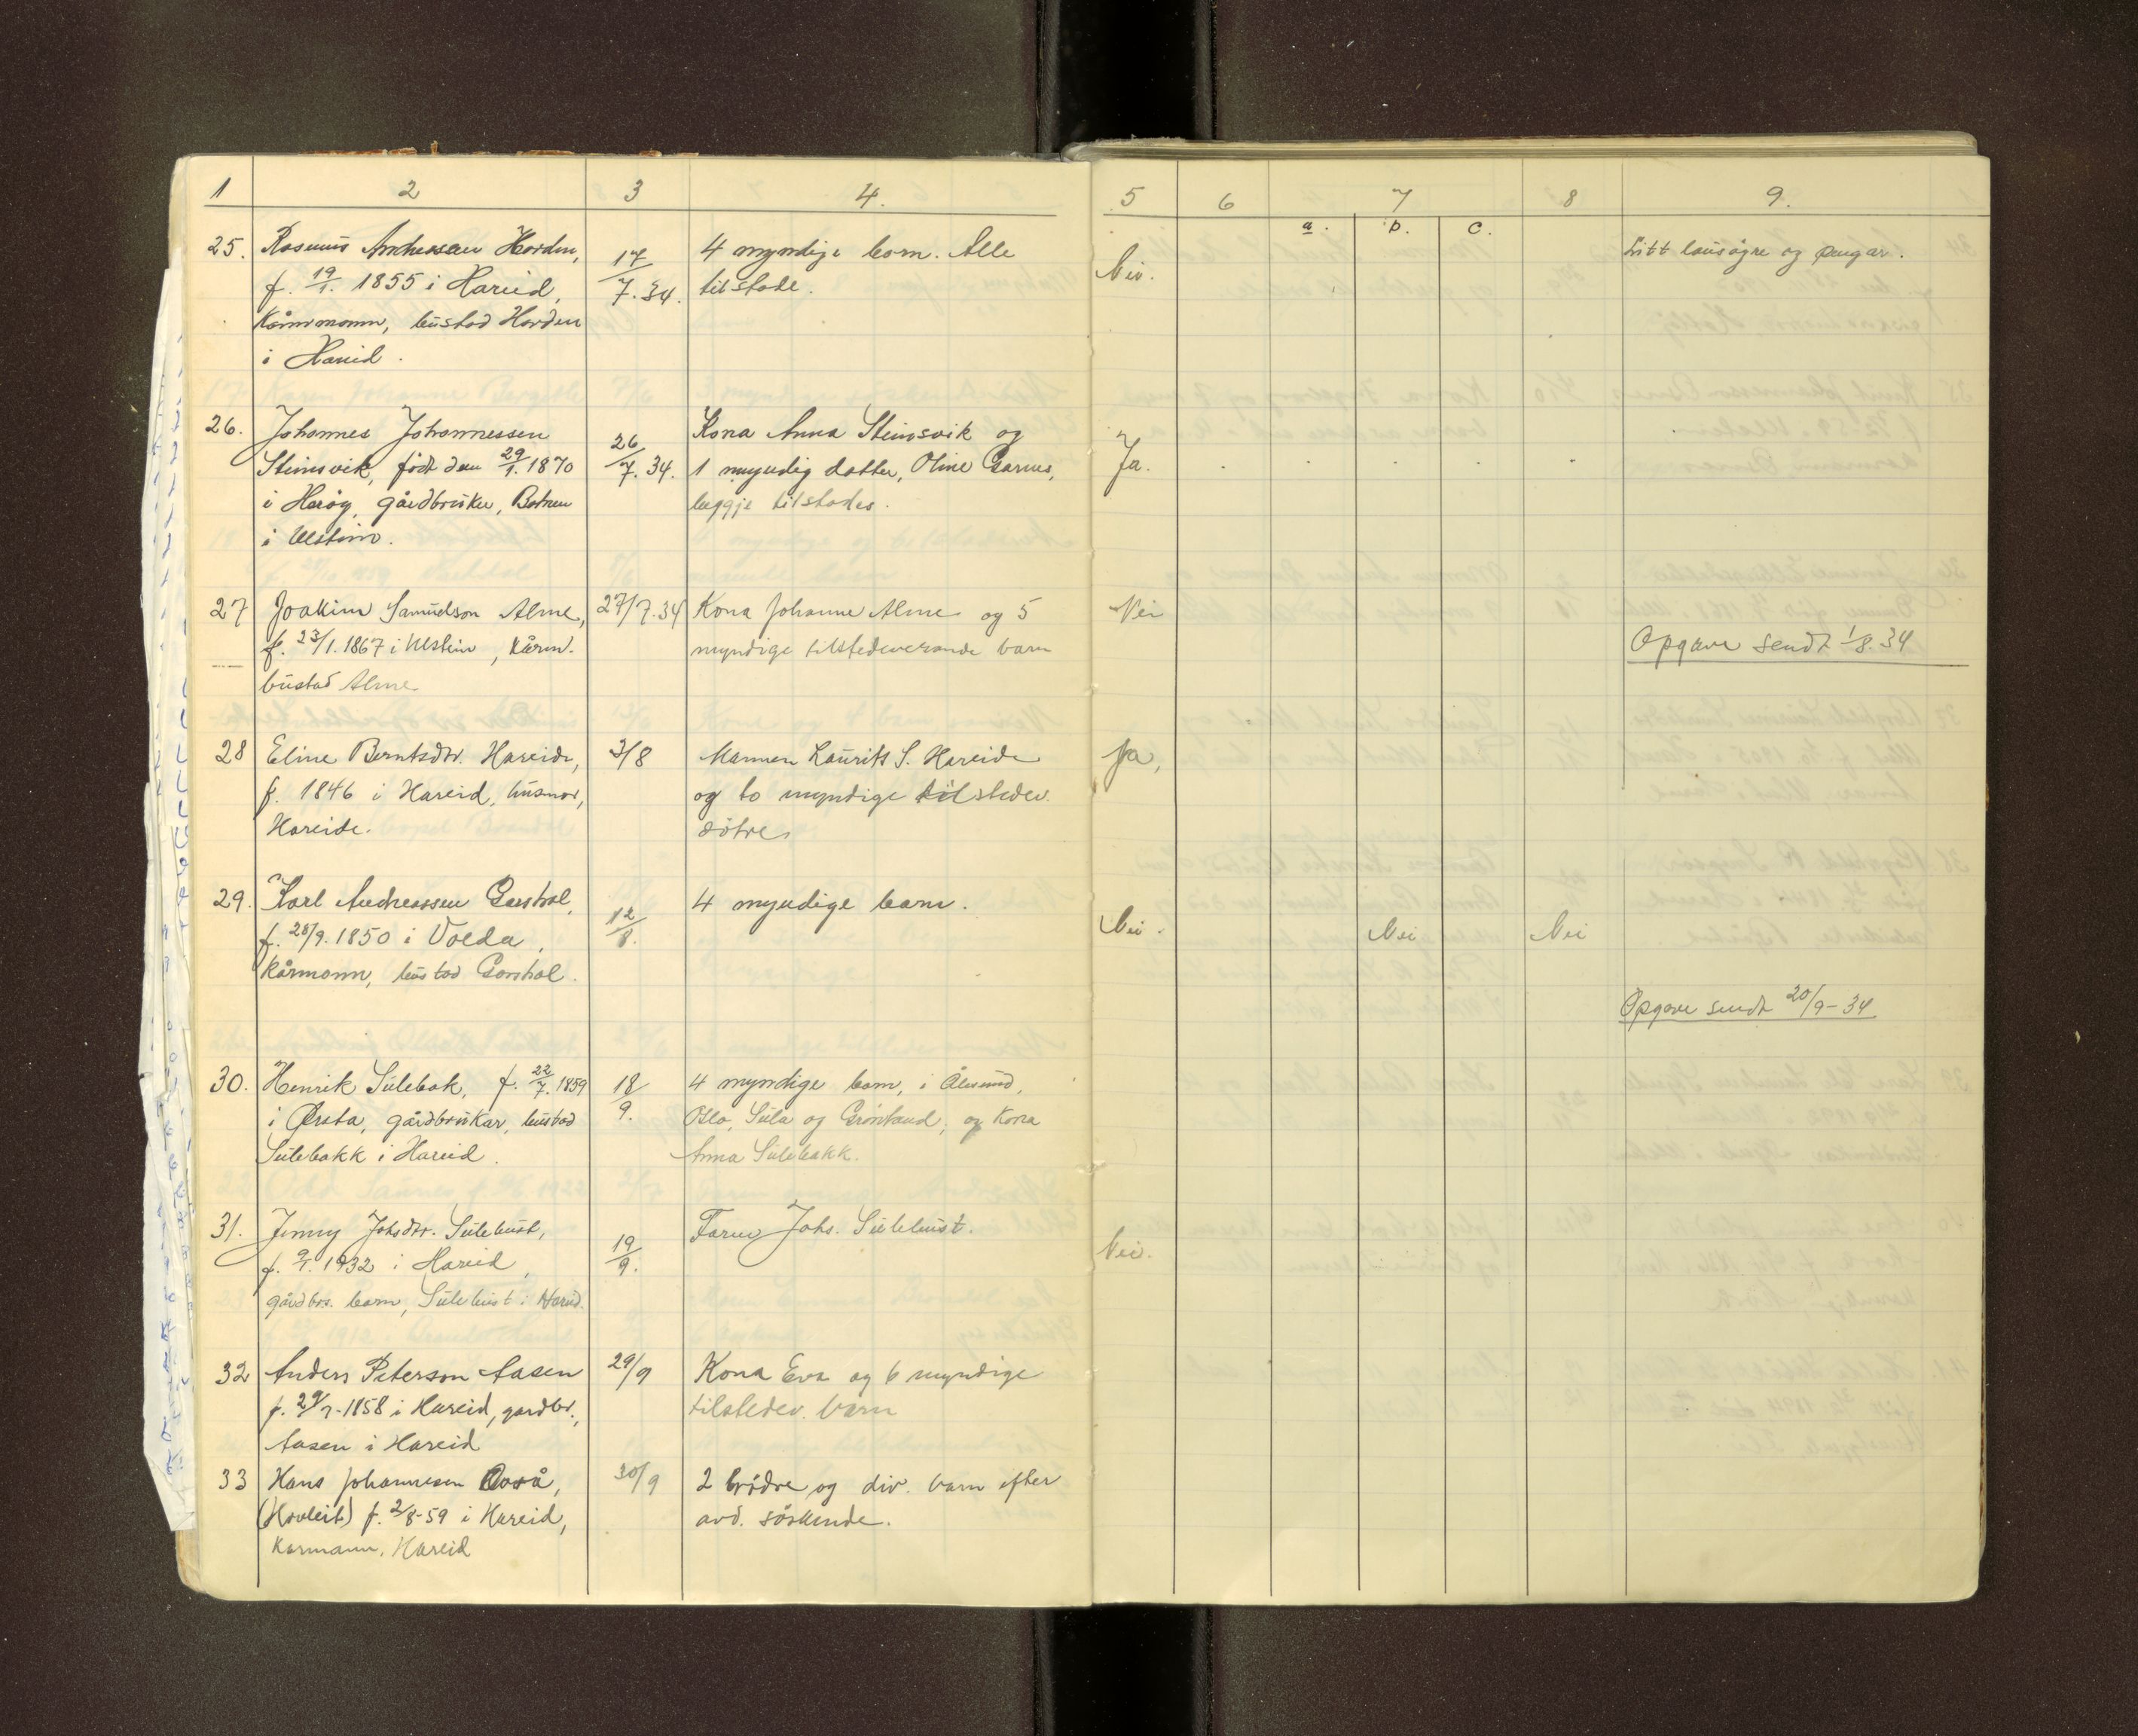 1 2 3 4. 5 6 7 8 9.
a. b. c.
25. Rasmus Andreassen Hovden, 17/7.34. 4 myndige born. Alle Nei. Litt lausøyre og pengar.
f. 19/1. 1855 i Hareid, tilstade.
Kårmann, bustad Hovden
i Hareid.
26. Johannes Johannessen 26/7.34. Kona Anna Steinsvik og Ja.
Steinsvik, född den 29/1. 1870 1 myndig dotter, Oline Garnes,
i Herøy, gårdbruker, Botnen begge tilstades.
i Ulstein.
27 Joakim Samuelson Alme, 27/7.34 Kona Johanne Alme og 5 Nei
f. 23/1. 1867 i Ulstein, kårm. myndige tilstedeverande barn Opgave sendt 1/8. 34
bustad Alme
28 Eline Berntsdtr. Hareide, 3/8 Mannen Laurits S. Hareide Ja,
f. 1846 i Hareid, husmor, og to myndige tilstedev.
Hareide. døtre
29. Karl Andreassen Garshol, 12/8. 4 myndige barn. Nei. Nei Nei
f. 28/9. 1850 i Volda,
kårmann, bustad Garshol.
Opgave sendt 20/9-34
30. Henrik Sulebak, f. 22/7. 1859 18/9. 4 myndige barn, i Ålesund,
i Ørsta, gårdbrukar, bustad Oslo, Sula og Grønland, og kona
Sulebakk i Hareid. Anna Sulebakk.
31. Jenny Johsdtr. Sulebust, 19/9. Faren Johs. Sulebust. Nei.
f. 9/1. 1932 i Hareid,
gårdbrs. barn, Sulebust i Hareid.
32 Anders Peterson Aasen 29/9 Kona Eva og 6 myndige
f. 29/7-1858 i Hareid, gardbr., tilstedev. barn
Aasen i Hareid
33 Hans Johannesen Overå, 30/9 2 brødre og div. barn efter
(Hovleit) f. 2/8-59 i Hareid, avd. søskende.
Karmann, Hareid